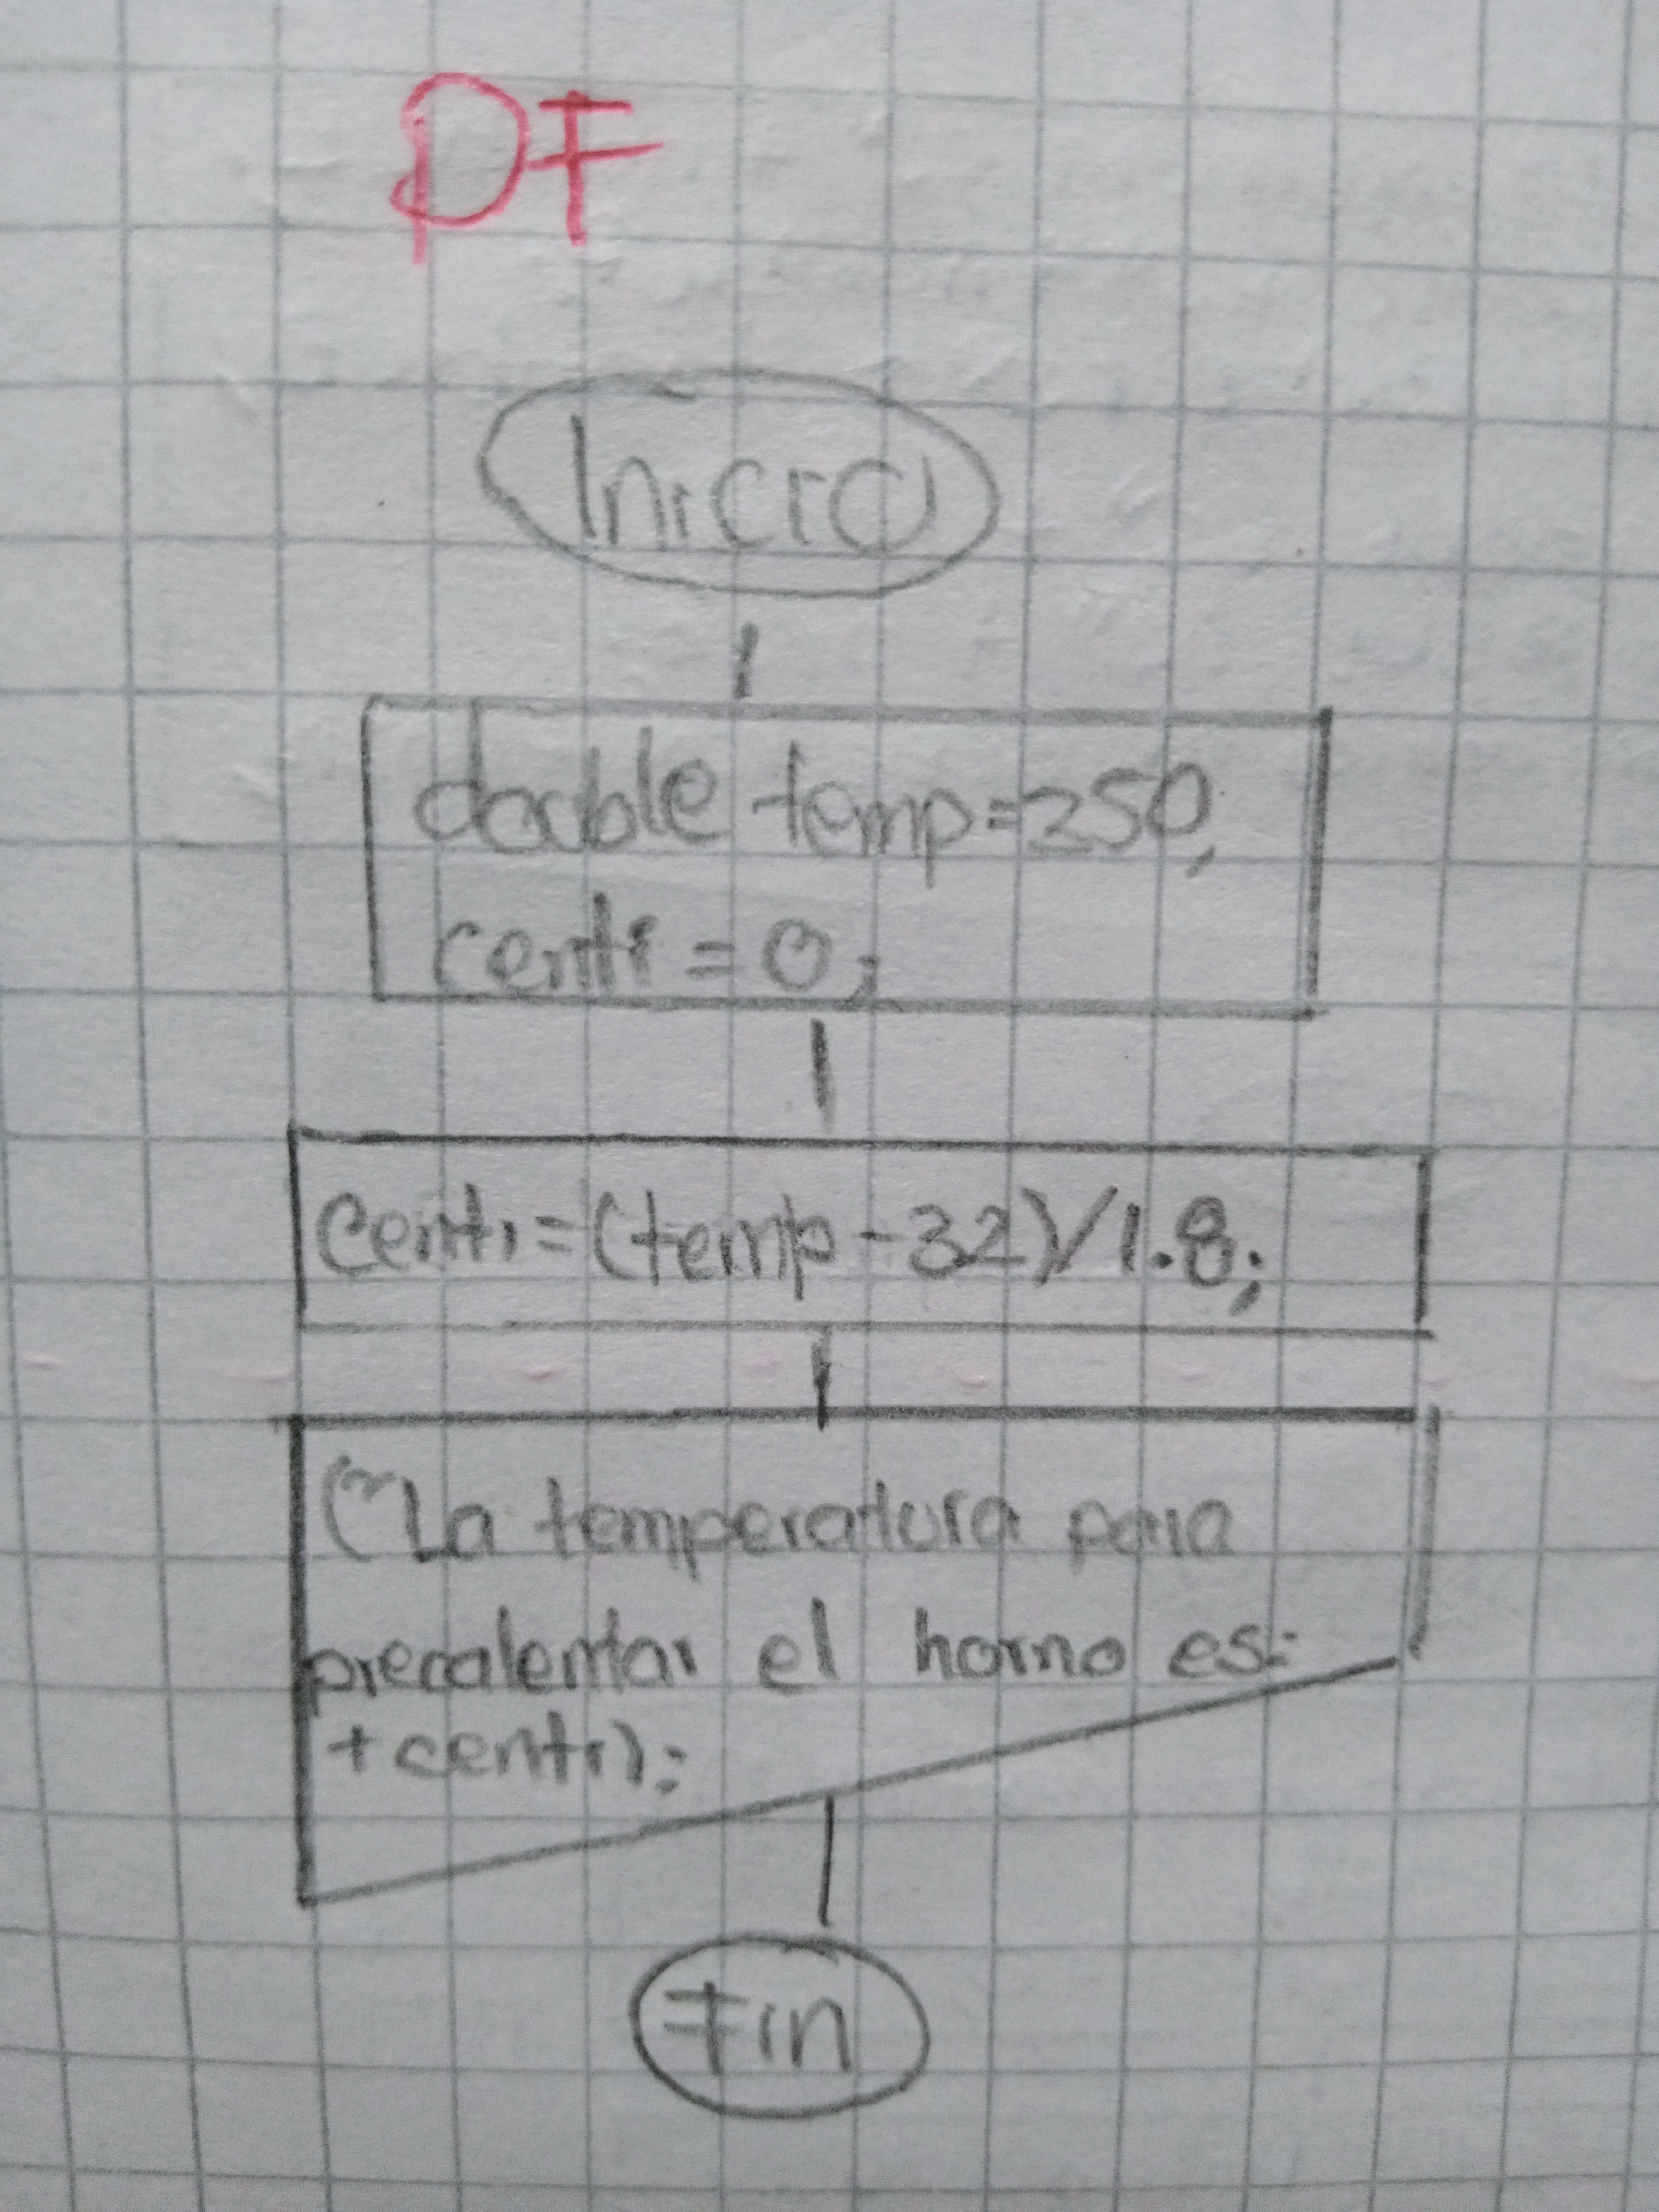 DF
Inicio
double temp=250,
centi = 0;
centi=(temp-32)/1.8;
("La temperatura para
precalentar el horno es:
+centi);
Fin